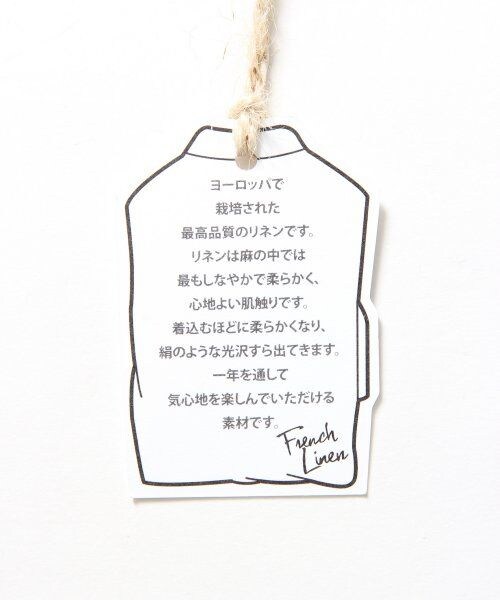 ヨーロッパで
栽培された
最高品質のリネンです。
リネンは麻の中では
最もしなやかで柔らかく、
心地よい肌触りです。
着込むほどに柔らかくなり、
絹のような光沢すら出てきます。
一年を通して
気心地を楽しんでいただける
素材です。
French
Linen